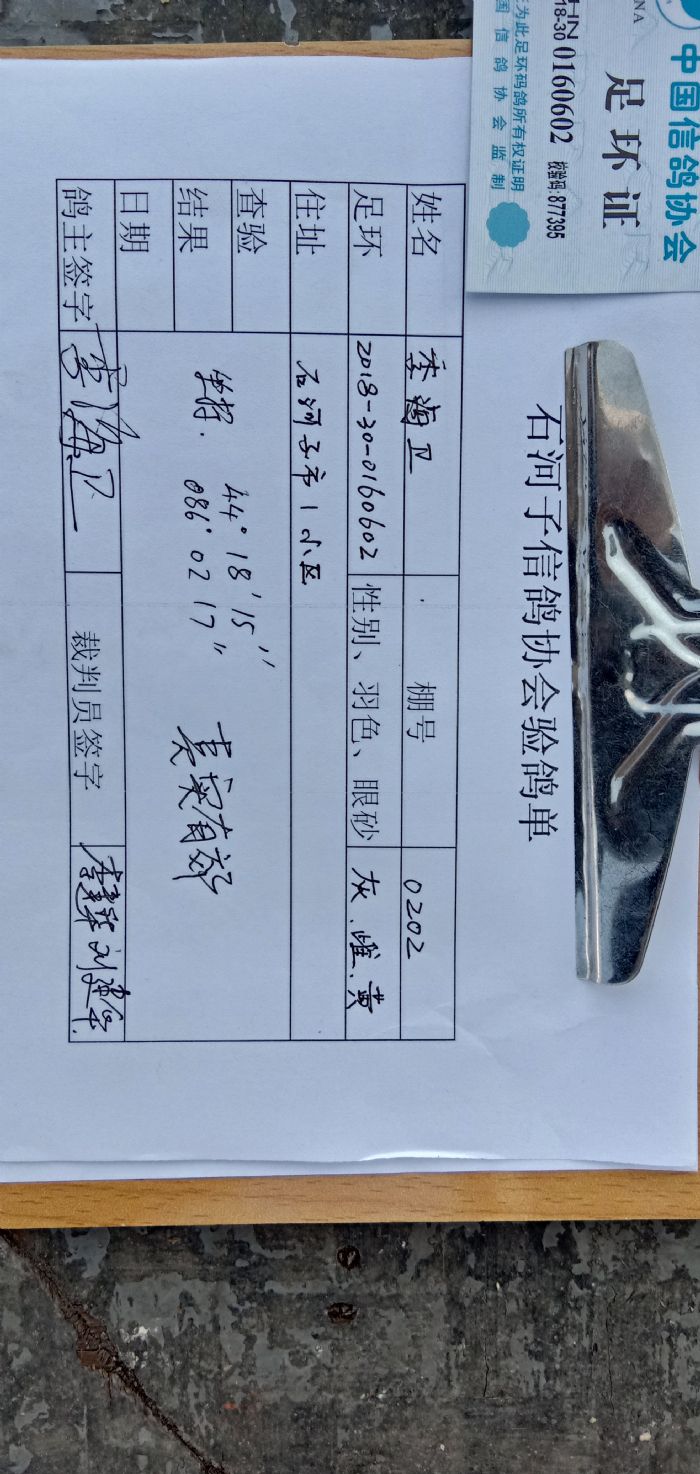 中国信鸽协会
足环证
18-30 0160602 校验码:877395
为此足环码鸽所有权证明
国信鸽协会监制
石河子信鸽协会验鸽单
姓名 李海卫 棚号 0202
足环 2018-30-0160602 性别、羽色、眼砂 灰.雌.黄
住址 石河子市1小区
查验
结果
44°18'15''
086°02 17''
日期
鸽主签字 李海卫 裁判员签字